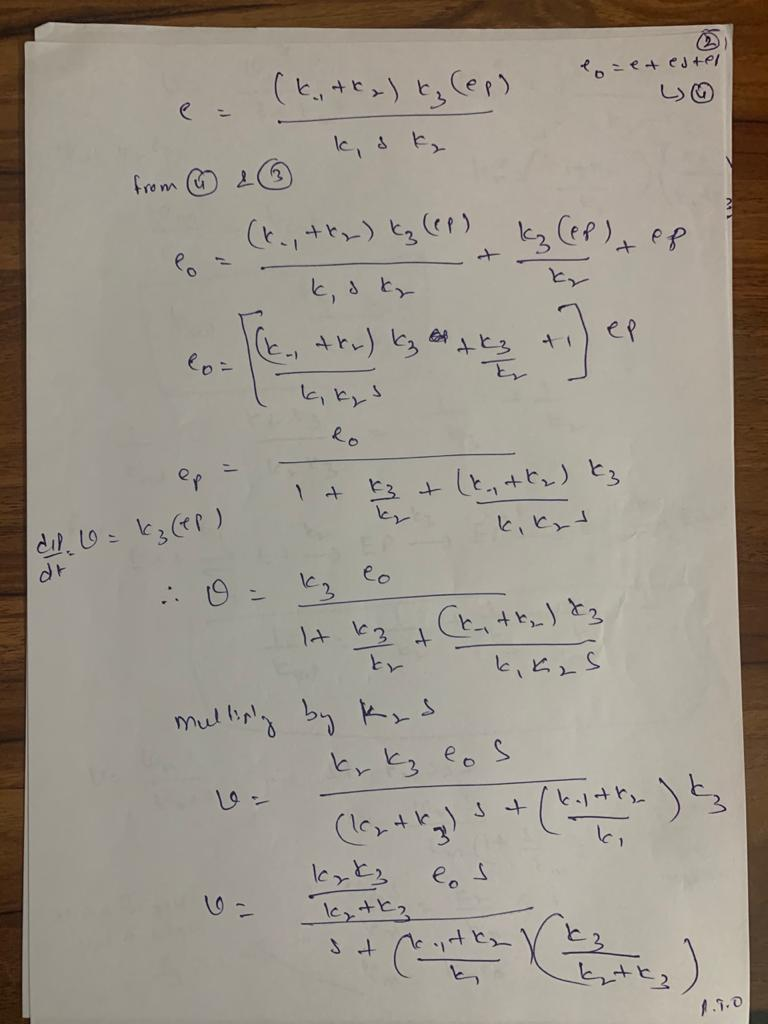 ②
e₀ = e + es + ep
↳ ④
e = (k₋₁ + k₂) k₃ (ep) / k₁ s k₂
from ④ & ③
e₀ = (k₋₁ + k₂) k₃ (ep) / k₁ s k₂ + k₃ (ep) / k₂ + ep
e₀ = [ (k₋₁ + k₂) k₃ / k₁ k₂ s + k₃ / k₂ + 1 ] ep
ep = e₀ / 1 + k₃ / k₂ + (k₋₁ + k₂) k₃ / k₁ k₂ s
dp / dt = v = k₃ (ep)
∴ v = k₃ e₀ / 1 + k₃ / k₂ + (k₋₁ + k₂) k₃ / k₁ k₂ s
Multiply by k₂ s
v = k₂ k₃ e₀ s / (k₂ + k₃) s + (k₋₁ + k₂ / k₁) k₃
v = k₂ k₃ / k₂ + k₃ e₀ s / s + (k₋₁ + k₂ / k₁) (k₃ / k₂ + k₃)
P.T.O